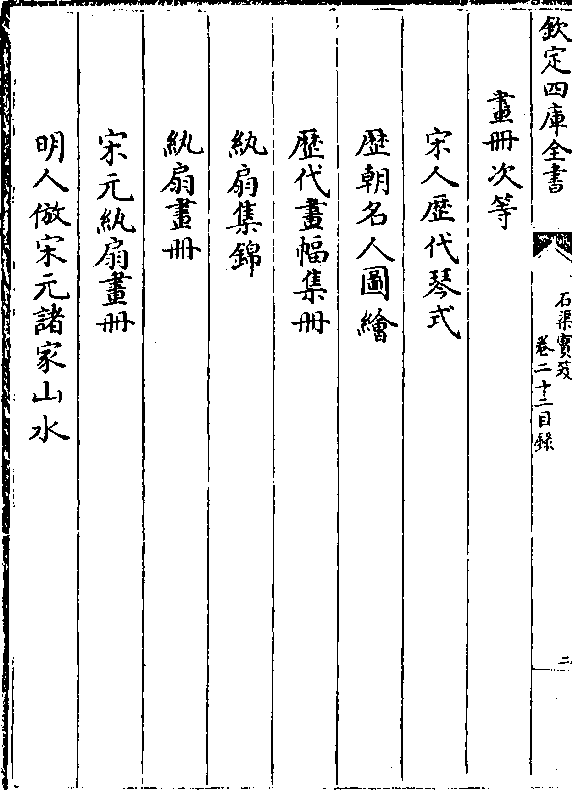 欽定四庫全書
石渠寶笈
卷二十二目錄
二
畫冊次等
宋人歴代琴式
歴朝名人圖繪
歴代畫幅集冊
紈扇集錦
紈扇畫冊
宋元紈扇畫冊
明人倣宋元諸家山水